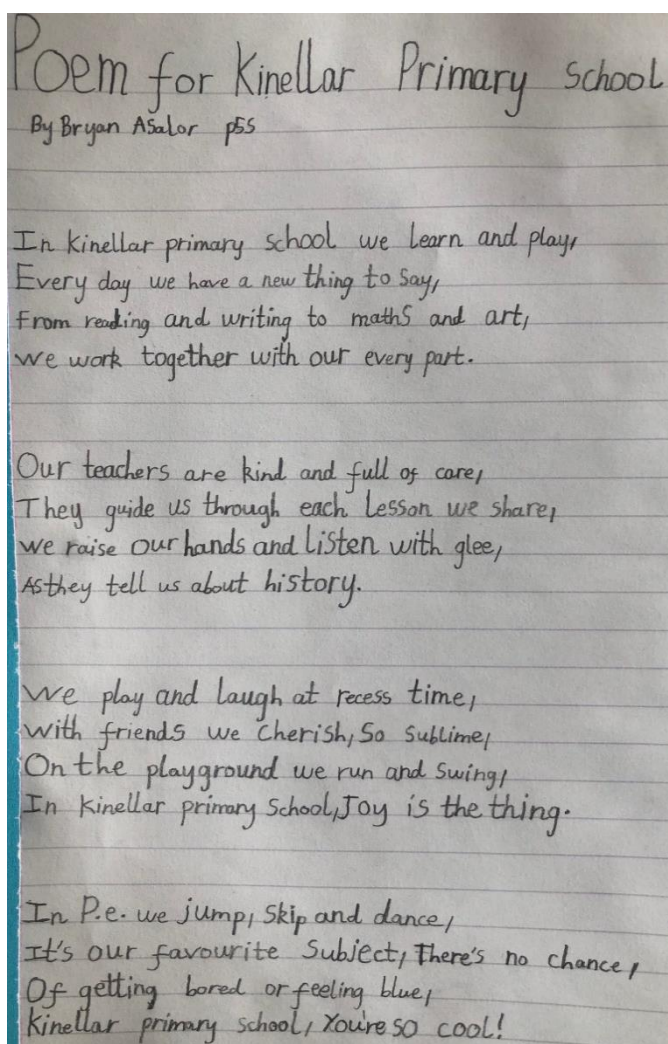 Poem for Kinellar Primary School
By Bryan Asalor p5S
In kinellar primary school we learn and play,
Every day we have a new thing to say,
From reading and writing to maths and art,
we work together with our every part.
Our teachers are kind and full of care,
They guide us through each lesson we share,
we raise our hands and listen with glee,
As they tell us about history.
We play and laugh at recess time,
with friends we Cherish, So Sublime,
On the playground we run and swing,
In kinellar primary School, Joy is the thing.
In P.e. we jump, Skip and dance,
It's our favourite Subject, There's no chance,
Of getting bored or feeling blue,
kinellar primary school, You're so cool!